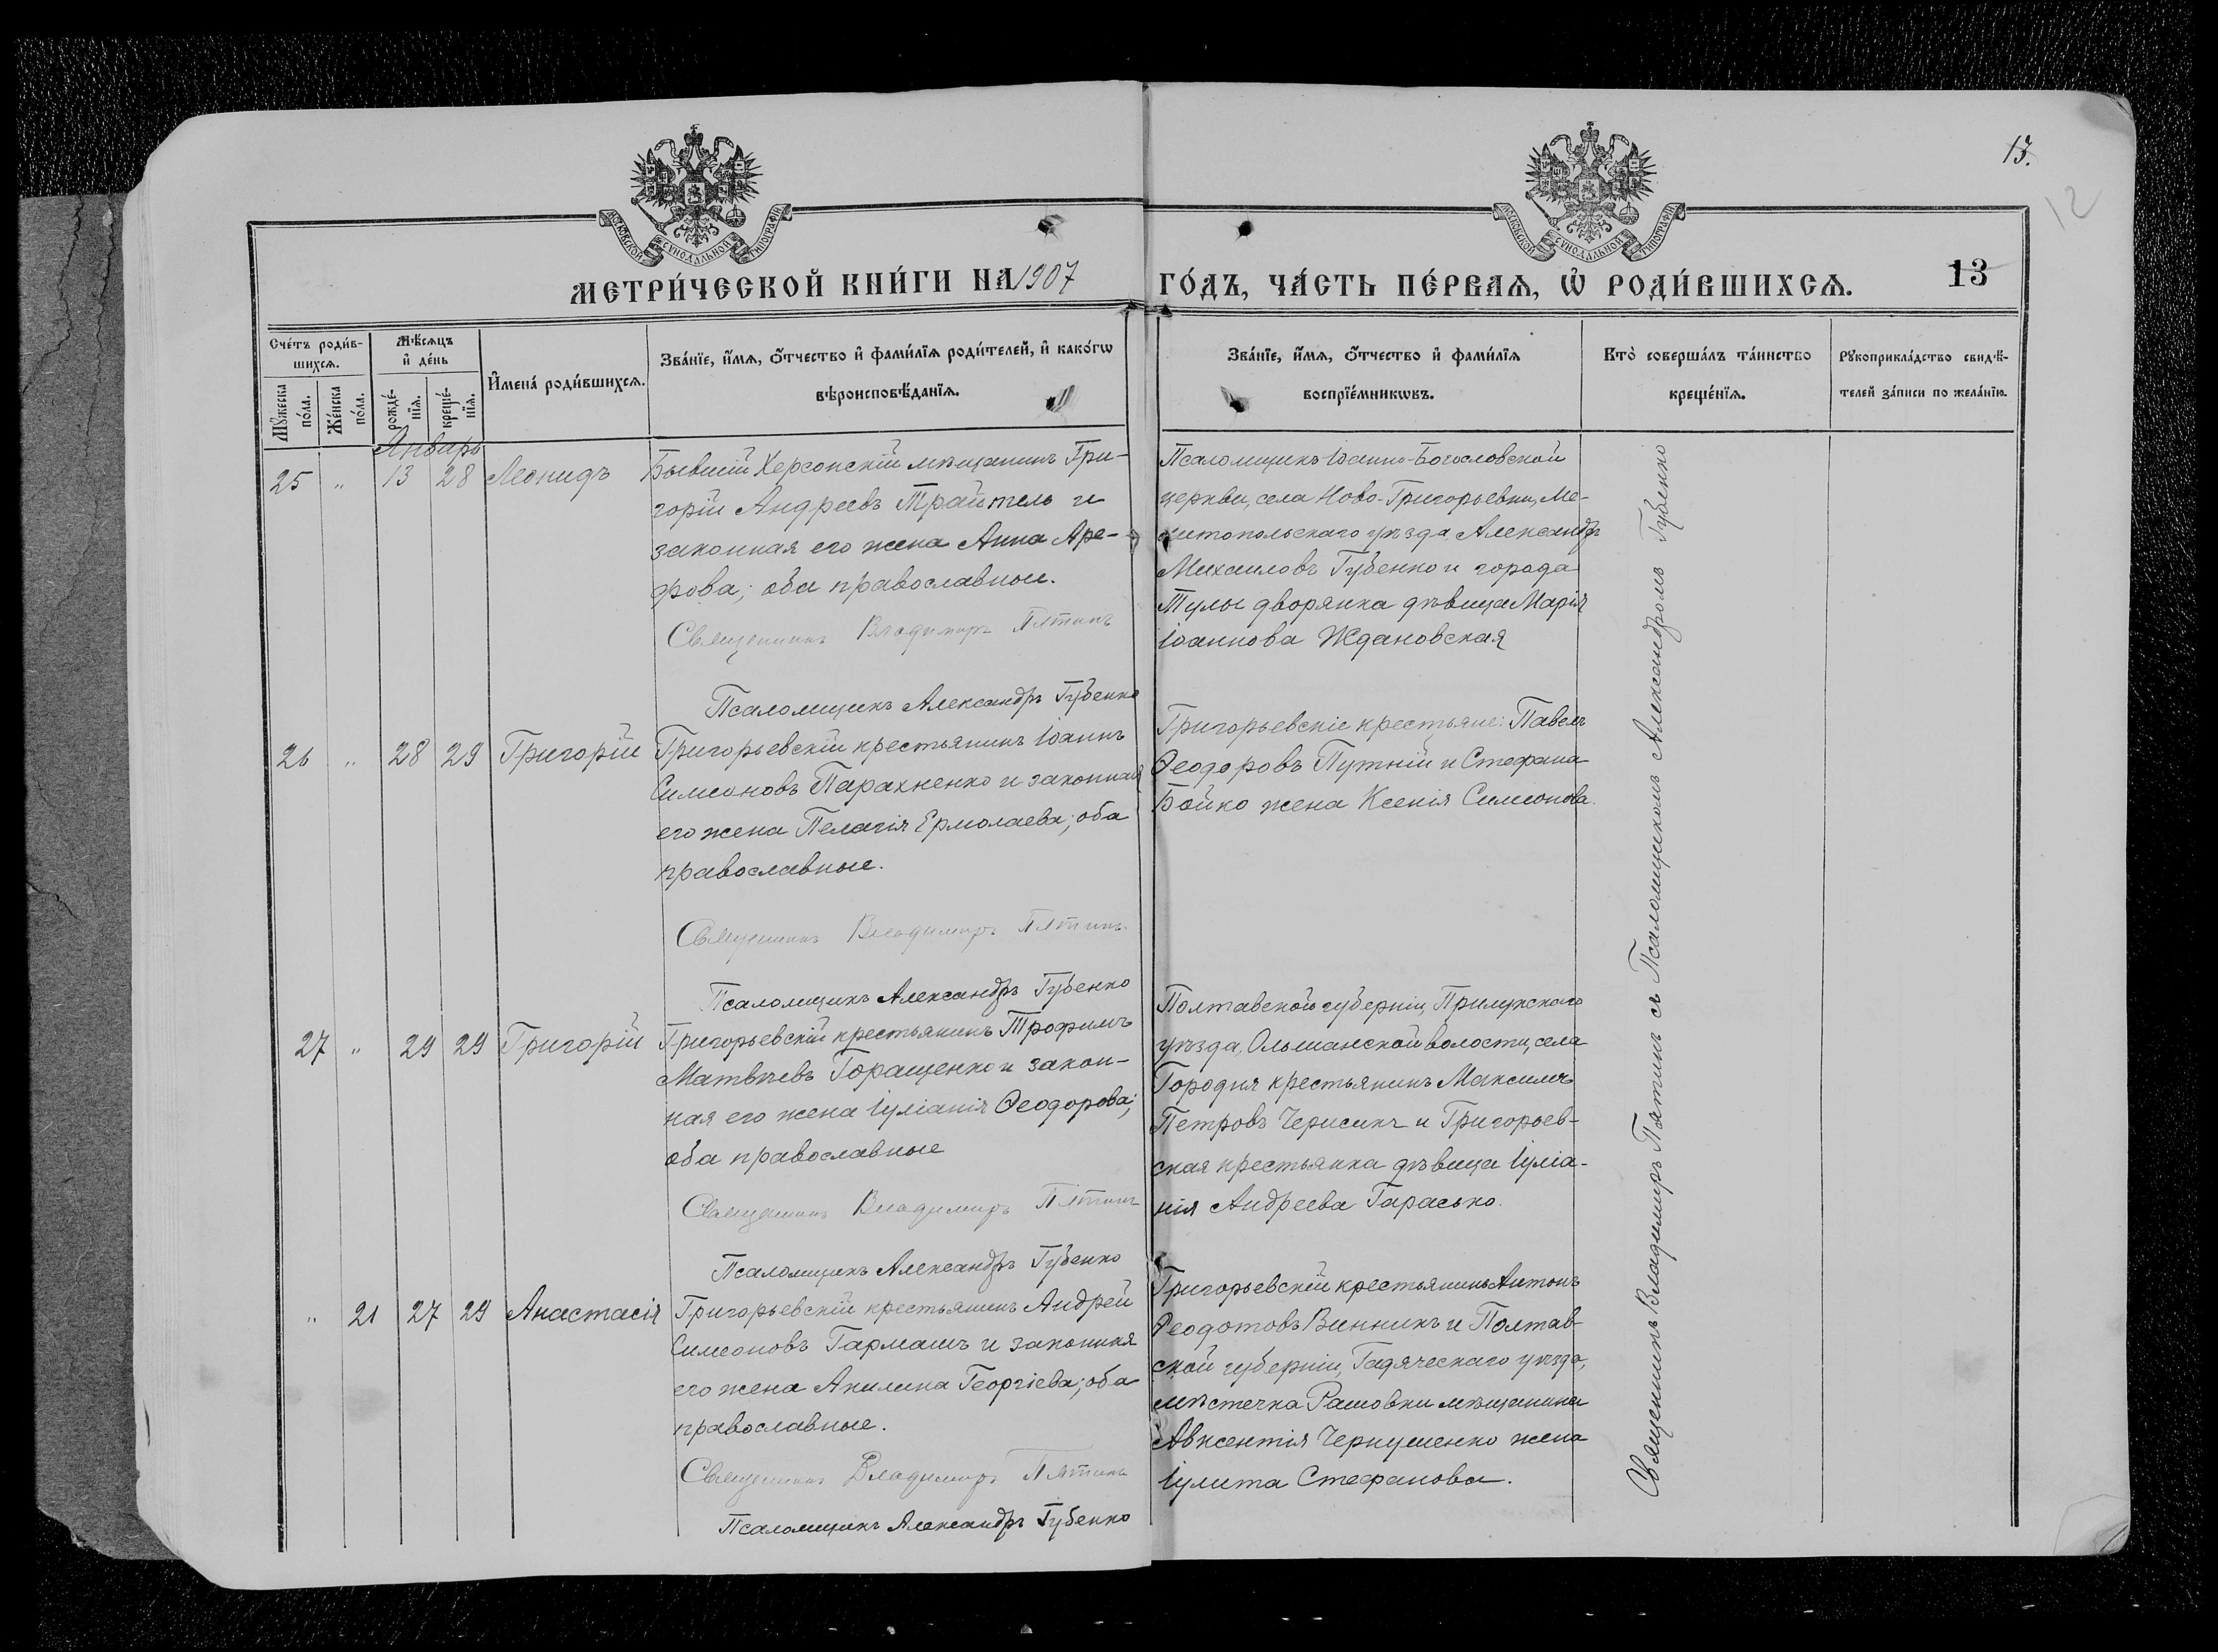 13.
12
МОСКОВСКОЙ СѴНОДАЛЬНОЙ ТИПОГРАФІИ
МОСКОВСКОЙ СѴНОДАЛЬНОЙ ТИПОГРАФІИ
МЕТРИ́ЧЕСКОЙ КНИ́ГИ НА 1907 ГО́ДЪ, ЧА́СТЬ ПЕ́РВАѦ, Ѽ РОДИ́ВШИХСѦ.
13
Сче́тъ роди́в-
шихсѧ.
Мꙋ́жеска по́ла.
Же́нска по́ла.
Мѣ́сѧцъ
и҆ де́нь
рожде́-
нїѧ.
креще́-
нїѧ.
И҆мена̀ роди́вшихсѧ.
Зва́нїе, и҆́мѧ, ѻ҆́тчество и҆ фами́лїѧ роди́телей, и҆ како́гѡ
вѣроисповѣ́данїѧ.
Зва́нїе, и҆́мѧ, ѻ҆́тчество и҆ фами́лїѧ
воспрїе́мникѡвъ.
Кто̀ соверша́лъ та́инство
креще́нїѧ.
Рꙋкоприкла́дство свидѣ́-
телей за́писи по жела́нїю.
Январь
25 " 13 28 Леонидъ
Бывшій Херсонскій мѣщанинъ Гри-
горій Андреевъ Трайтель и
законная его жена Анна Аре-
фова; оба православные.
Священникъ Владимиръ Пятинъ
Псаломщикъ Александръ Губенко
Псаломщикъ Іоанно-Богословской
церкви, села Ново-Григорьевки, Ме-
литопольскаго уѣзда Александръ
Михаиловъ Губенко и города
Тулы дворянка дѣвица Марія
Іоаннова Ждановская
26 " 28 29 Григорій
Григорьевскій крестьянинъ Іоаннъ
Симеоновъ Парахненко и законная
его жена Пелагія Ермолаева; оба
православные.
Священникъ Владимиръ Пятинъ
Псаломщикъ Александръ Губенко
Григорьевскіе крестьяне: Павелъ
Ѳеодоровъ Путній и Стефана
Бойко жена Ксенія Симеонова.
27 " 29 29 Григорій
Григорьевскій крестьянинъ Трофимъ
Матвѣевъ Горащенко и закон-
ная его жена Іуліанія Ѳеодорова;
оба православные
Священникъ Владимиръ Пятинъ
Псаломщикъ Александръ Губенко
Полтавской губерніи, Прилукскаго
уѣзда, Ольшанской волости, села
Городня крестьянинъ Максимъ
Петровъ и Григорьев-
ская крестьянка дѣвица Іуліа-
нія Андреева Гарасько.
" 21 27 29 Анастасія
Григорьевскій крестьянинъ Андрей
Симеоновъ Гармашъ и законная
его жена Акилина Георгіева; оба
православные.
Священникъ Владимиръ Пятинъ
Псаломщикъ Александръ Губенко
Григорьевскій крестьянинъ Антонъ
Ѳеодотовъ Винникъ и Полтав-
ской губерніи, Гадяческаго уѣзда,
мѣстечка Рашовки мѣщанина
Авксентія Чернушенко жена
Іулита Стефанова.
Священникъ Владимиръ Пятинъ съ Псаломщикомъ Александромъ Губенко